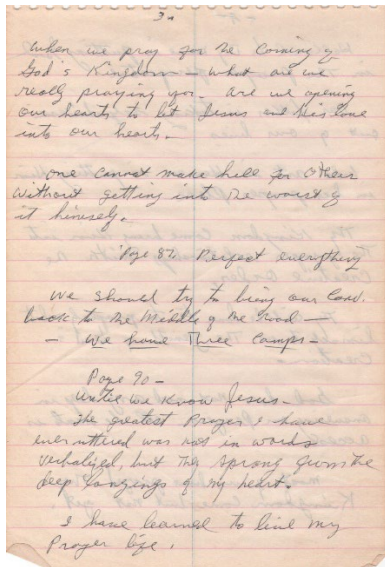 3a
when we pray for the coming of
God's Kingdom - what are we
really praying for. Are we opening
our hearts to let Jesus and His love
into our hearts.
one cannot make hell for others
without getting into the worst of
it himself.
Page 87. Perfect everything
we should try to bring our Land.
back to the Middle of the Road -
- we have Three Camps -
Page 90 -
Until we know Jesus -
The greatest Prayer I have
ever uttered was not in words
verbalized, but they sprang from the
deep longings of my heart.
I have learned to live my
Prayer life.